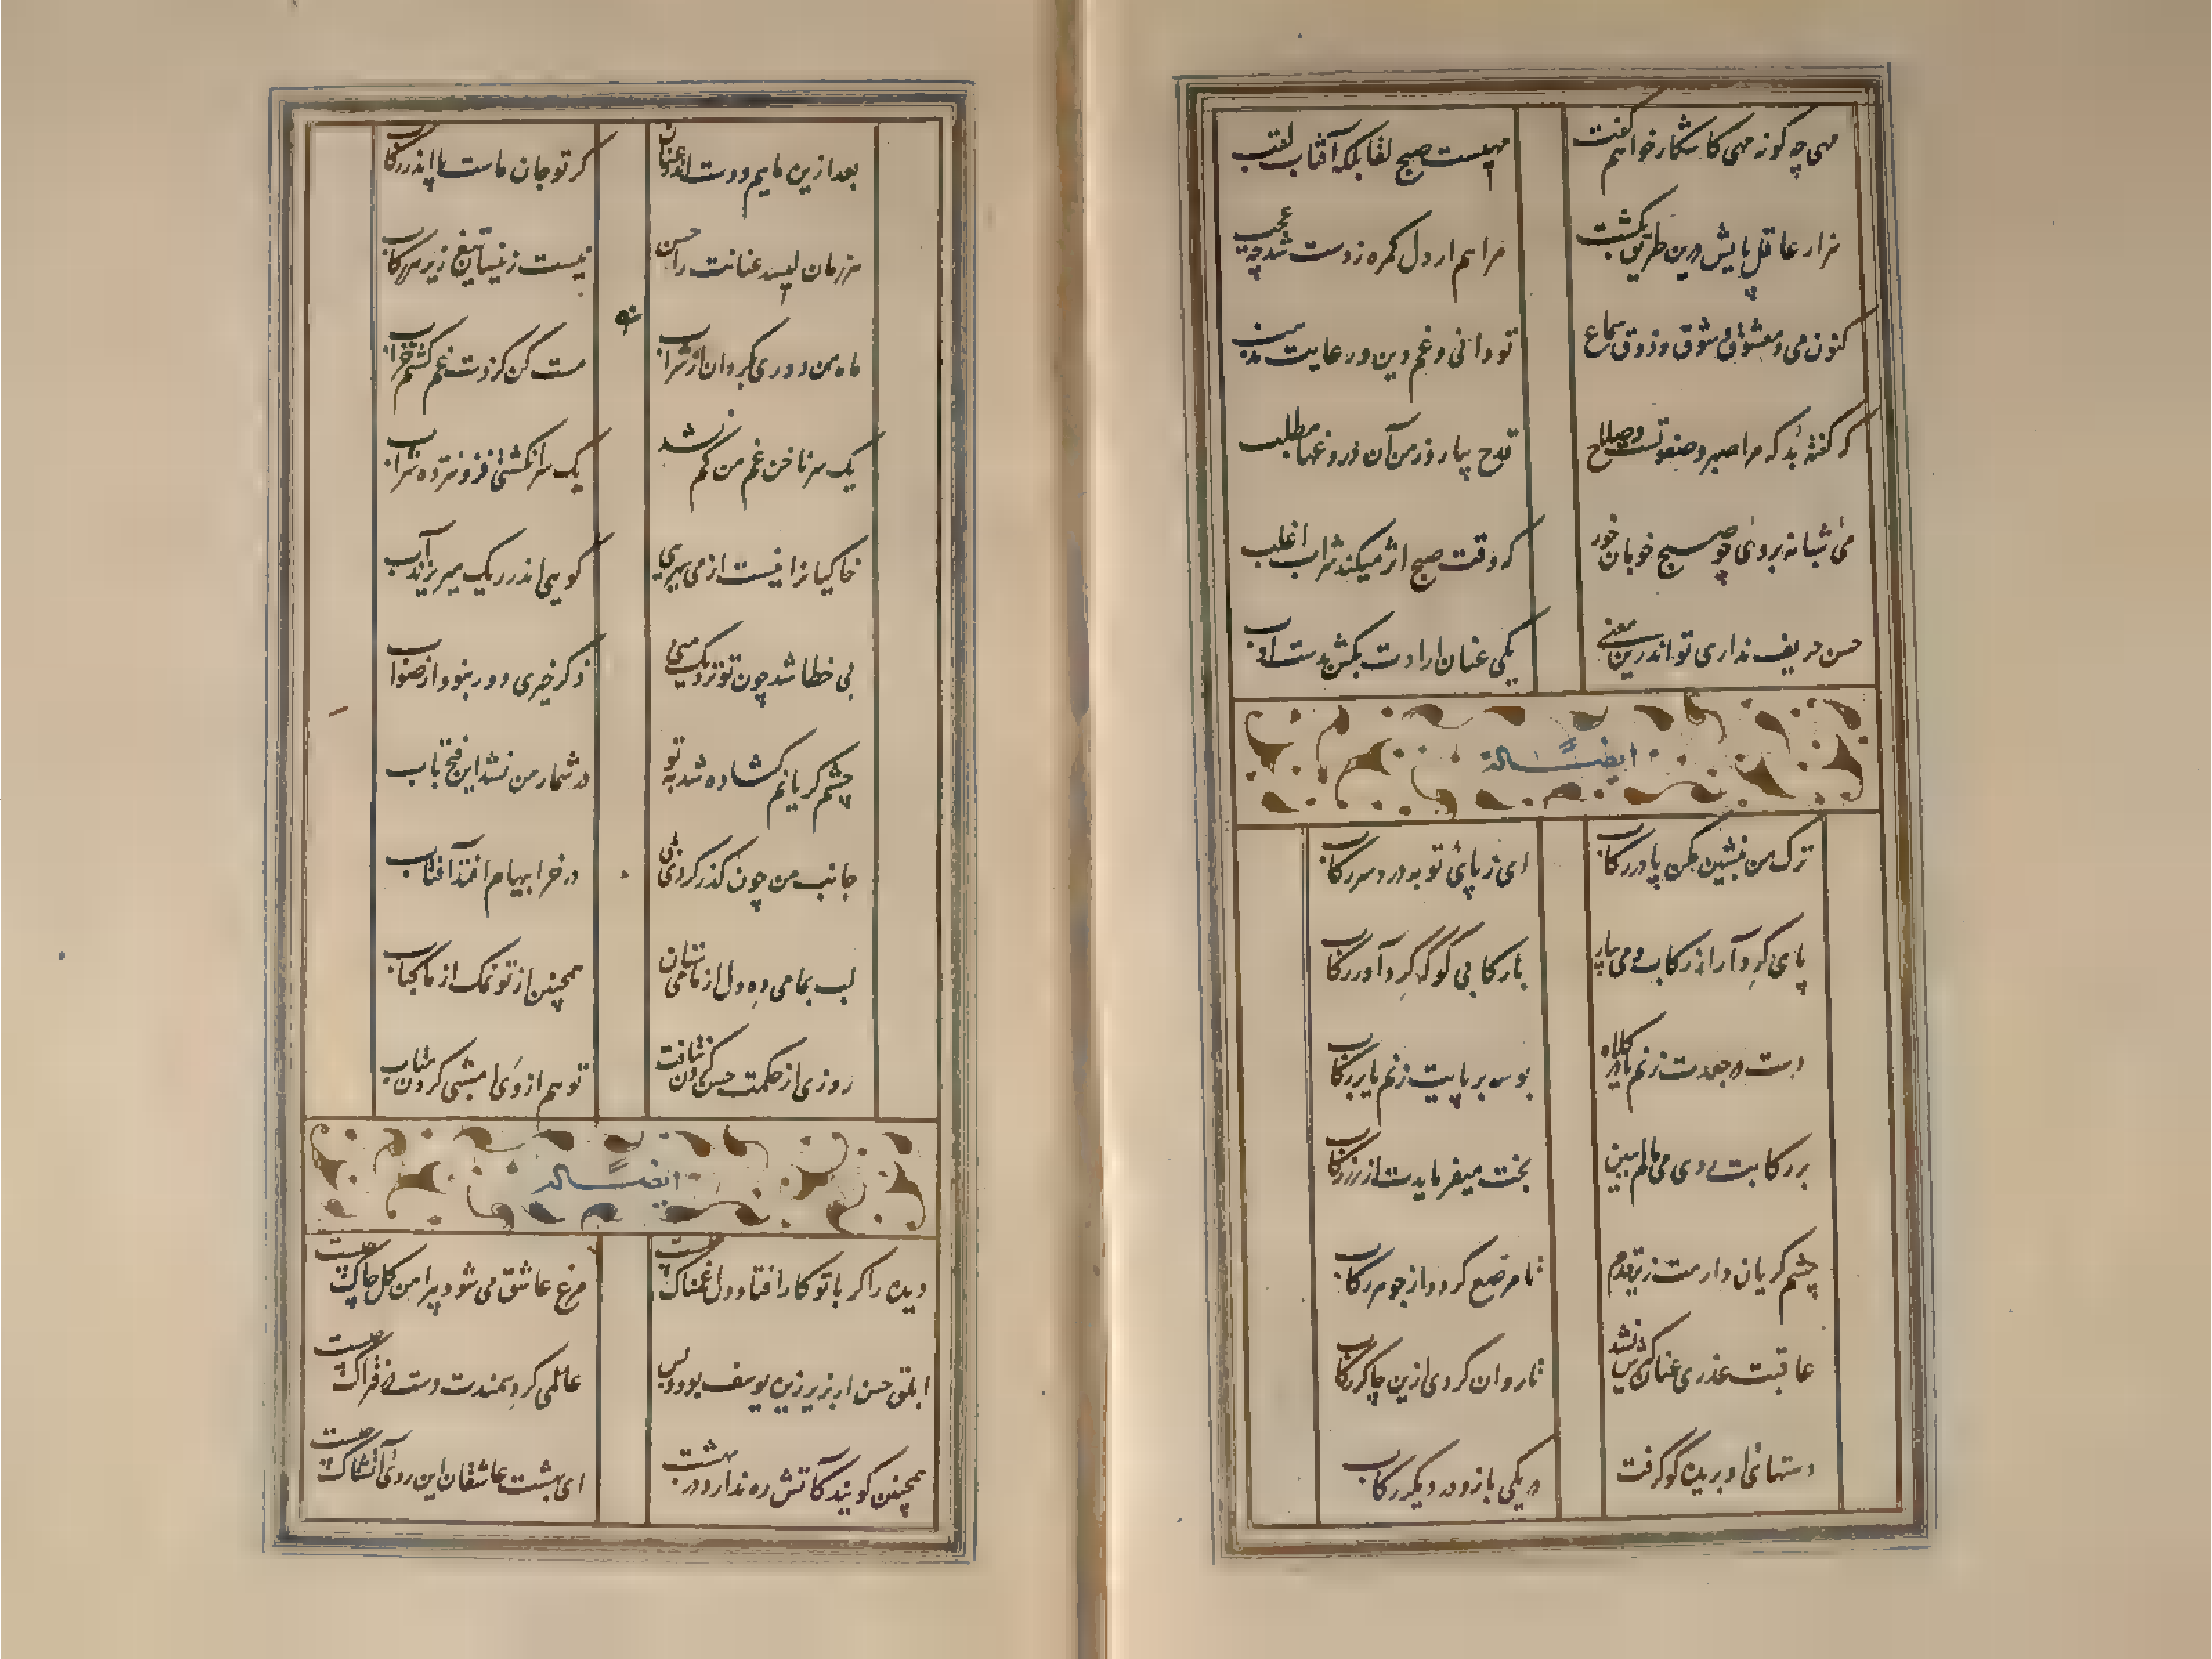 مهی چه گونه مهی کاشکار خواهم گفت
مهیست صبح لقا بلکه آفتاب لقب
هزار عاقل پایش درین طریق بکشت
مرا هم ار دل گمره ز دست شد چه عجب
کنون می و معشوق و شوق و ذوق سماع
تو دانی و غم دین و رعایت مذهب
که گفته بد که مرا صبر و صفوتست و صلاح
قدح بیار و ز من آن دروغها مطلب
می شبانه بروی چو صبح خوبان خور
که وقت صبح اثر میکند شراب اغلب
حسن حریف نداری تو اندرین معنی
یکی عنان ارادت بکش بدست ادب
ایضاً له
ترک من بنشین مکن پا در رکاب
ای ز پای تو بدرد سر رکاب
پای گرد آر از رکاب و می بیار
با رکابی گو که گرد آور رکاب
دست در جعدت زنم یا در کلاه
بوسه بر پایت زنم یا بر رکاب
بر رکابت روی می مالم ببین
بخت میفرمایدت از زر رکاب
چشم گریان دارمت زیر قدم
تا مرصع گردد از جوهر رکاب
عاقبت عذری عنان کس نشد
تا روان کردی ازین چاکر رکاب
دستهای او بریده گو گرفت
در یکی بازو در دیگر رکاب
بعد ازین ماییم و دست اندر عنان
گر تو جان ماست پا اندر رکاب
هر زمان لیسد عنانت را حسن
نیست زینسان تیغ زیر سر رکاب
ماه من دوری بگردان از شراب
مست کن کز دست غم گشتم خراب
یک سر ناخن غم من کم نشد
یک سر انگشتی فزونتر ده شراب
خاکیانرا نیست از می سیریی
گویی اندر ریک میریزند آب
بی خطا شد چون تو نزدیک منی
ذکر خیری دور بنود از صواب
چشم گریانم گشاده شد به تو
در شمار من نشد این فتح باب
جانب من چون گذر کردی شبی
در خرابیها م افتد آفتاب
لب بما می ده دل از ما می ستان
همچنین از تو نمک از ما کباب
روزی از حکمت حسن گردن نتافت
تو هم از وی ا مشبی گردن متاب
ایضاً له
دیده را گر با تو کار افتاد دل غمناک چیست
مرغ عاشق می شود پیراهن گل چاک چیست
ابلق حسن ار بزیر زین یوسف بود و بس
عالمی گرد سمندت دست در فتراک چیست
همچنین گویند کآتش ره ندارد در بهشت
ای بهشت عاشقان این روی آتشناک چیست